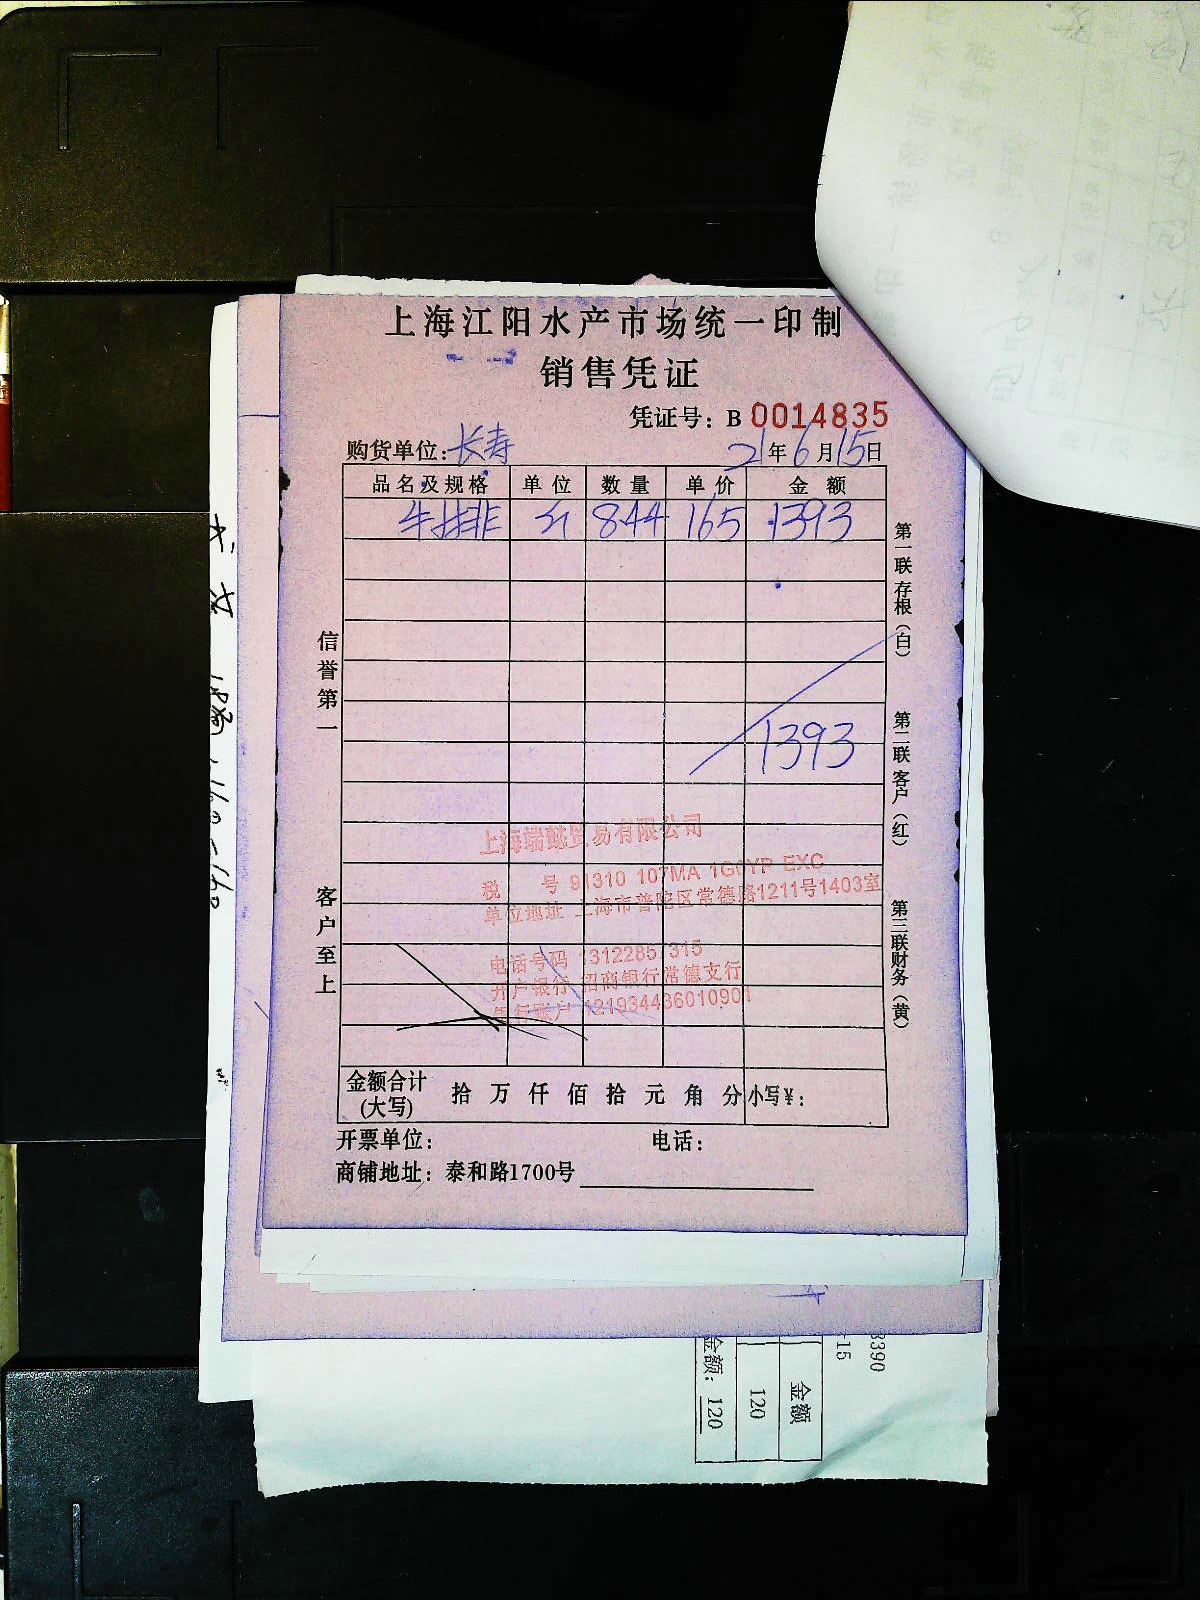 上海江阳水产市场统一印制
销售凭证
凭证号：B 0014835
购货单位：长寿 21年6月15日
品名及规格 单位 数量 单价 金额
牛排 斤 844 165 1393
1393
信誉第一
客户至上
第一联存根（白）
第二联客户（红）
第三联财务（黄）
上海端懿贸易有限公司
税 号 91310 107MA 1G0YP EXC
单位地址 上海市普陀区常德路1211号1403室
电话号码 1312285 315
开户银行 招商银行常德支行
银行账户 121934436010901
金额合计(大写) 拾 万 仟 佰 拾 元 角 分 小写¥：
开票单位： 电话：
商铺地址：泰和路1700号
3390
-15
金额
120
金额：120